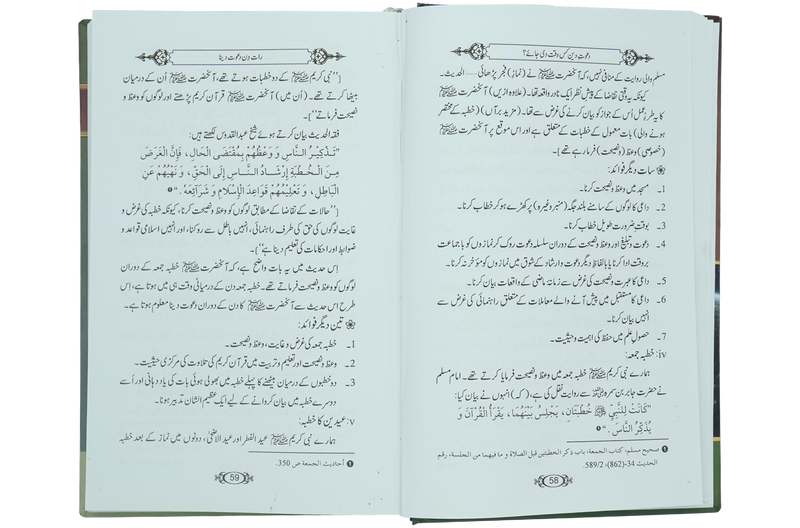 دعوتِ دین کس وقت دی جائے؟
مسلم والی روایت کے منافی نہیں، کہ آنحضرت ﷺ نے (نماز) فجر پڑھائی ..... الحدیث۔
کیونکہ یہ وقتی تقاضا کے پیشِ نظر ایک نادر واقعہ تھا۔ (علاوہ ازیں) آنحضرت ﷺ
کا یہ طرزِ عمل اُس کے جواز کو بیان کرنے کی غرض سے تھا۔ (مزید برآں) (خطبہ کے مختصر
ہونے والی) بات معمول کے خطبات کے متعلق ہے اور اس موقع پر آنحضرت ﷺ
(خصوصی) وعظ (ونصیحت) فرما رہے تھے]
سات دیگر فوائد:
1۔ مسجد میں وعظ و نصیحت کرنا۔
2۔ داعی کا لوگوں کے سامنے بلند جگہ (منبر وغیرہ) پر کھڑے ہو کر خطاب کرنا۔
3۔ بوقتِ ضرورت طویل خطاب کرنا۔
4۔ دعوت و تبلیغ اور وعظ و نصیحت کے دوران سلسلہ دعوت روک کر نمازوں کو باجماعت
بروقت ادا کرنا یا بالفاظِ دیگر دعوت و ارشاد کے شوق میں نمازوں کو مؤخر نہ کرنا۔
5۔ داعی کا عبرت و نصیحت کی غرض سے زمانہ ماضی کے واقعات بیان کرنا۔
6۔ داعی کا مستقبل میں پیش آنے والے معاملات کے متعلق راہنمائی کی غرض سے
انہیں بیان کرنا۔
7۔ حصولِ علم میں حفظ کی اہمیت و حیثیت۔
iv: خطبہ جمعہ:
ہمارے نبی کریم ﷺ خطبہ جمعہ میں وعظ و نصیحت فرمایا کرتے تھے۔ امام مسلم
نے حضرت جابر بن سمرہ رضی اللہ عنہ سے روایت نقل کی ہے، (کہ) انہوں نے بیان کیا:
"كَانَتْ لِلنَّبِيِّ ﷺ خُطْبَتَانِ، يَجْلِسُ بَيْنَهُمَا، يَقْرَأُ الْقُرْآنَ وَ
يُذَكِّرُ النَّاسَ." ❶
❶ صحیح مسلم، کتاب الجمعة، باب ذکر الخطبتین قبل الصلاة و ما فیهما من الجلسة، رقم
الحدیث 34-(862)، 589/2.
58
رات دِن دعوت دینا
["نبی کریم ﷺ کے دو خطبات ہوتے تھے، آنحضرت ﷺ اُن کے درمیان
بیٹھا کرتے تھے۔ (اُن میں) آنحضرت ﷺ قرآن کریم پڑھتے اور لوگوں کو وعظ و
نصیحت فرماتے"]۔
فقہ الحدیث بیان کرتے ہوئے شیخ عبدالقدوس لکھتے ہیں:
"تَذْكِيْرُ النَّاسِ وَ وَعْظُهُمْ بِمُقْتَضَى الْحَالِ، فَإِنَّ الْغَرَضَ
مِنَ الْخُطْبَةِ إِرْشَادُ النَّاسِ إِلَى الْحَقِّ، وَنَهْيُهُمْ عَنِ
الْبَاطِلِ، وَ تَعْلِيْمُهُمْ قَوَاعِدَ الْإِسْلَامِ وَ شَرَائِعَهُ." ❶
["حالات کے تقاضا کے مطابق لوگوں کو وعظ و نصیحت کرنا، کیونکہ خطبہ کی غرض و
غایت لوگوں کی حق کی طرف راہنمائی، انہیں باطل سے روکنا، اور انہیں اسلامی قواعد و
ضوابط اور احکامات کی تعلیم دینا ہے"]۔
اِس حدیث میں یہ بات واضح ہے، کہ آنحضرت ﷺ خطبہ جمعہ کے دوران
لوگوں کو وعظ و نصیحت فرماتے تھے۔ خطبہ جمعہ دن کے درمیانی وقت ہی میں ہوتا ہے، اِس
طرح اِس حدیث سے آنحضرت ﷺ کا دن کے دوران دعوت دینا معلوم ہوتا ہے۔
تین دیگر فوائد:
1۔ خطبہ جمعہ کی غرض و غایت، وعظ و نصیحت۔
2۔ وعظ و نصیحت اور تعلیم و تربیت میں قرآن کریم کی تلاوت کی مرکزی حیثیت۔
3۔ دو خطبوں کے درمیان بیٹھنے کا پہلے خطبہ میں بھولی ہوئی بات کی یاد دہانی اور اُسے
دوسرے خطبہ میں بیان کروانے کے لیے ایک عظیم الشان تدبیر ہونا۔
v: عیدین کا خطبہ:
ہمارے نبی کریم ﷺ عید الفطر اور عید الاضحیٰ، دونوں میں نماز کے بعد خطبہ
❶ أحادیث الجمعة ص 350.
59